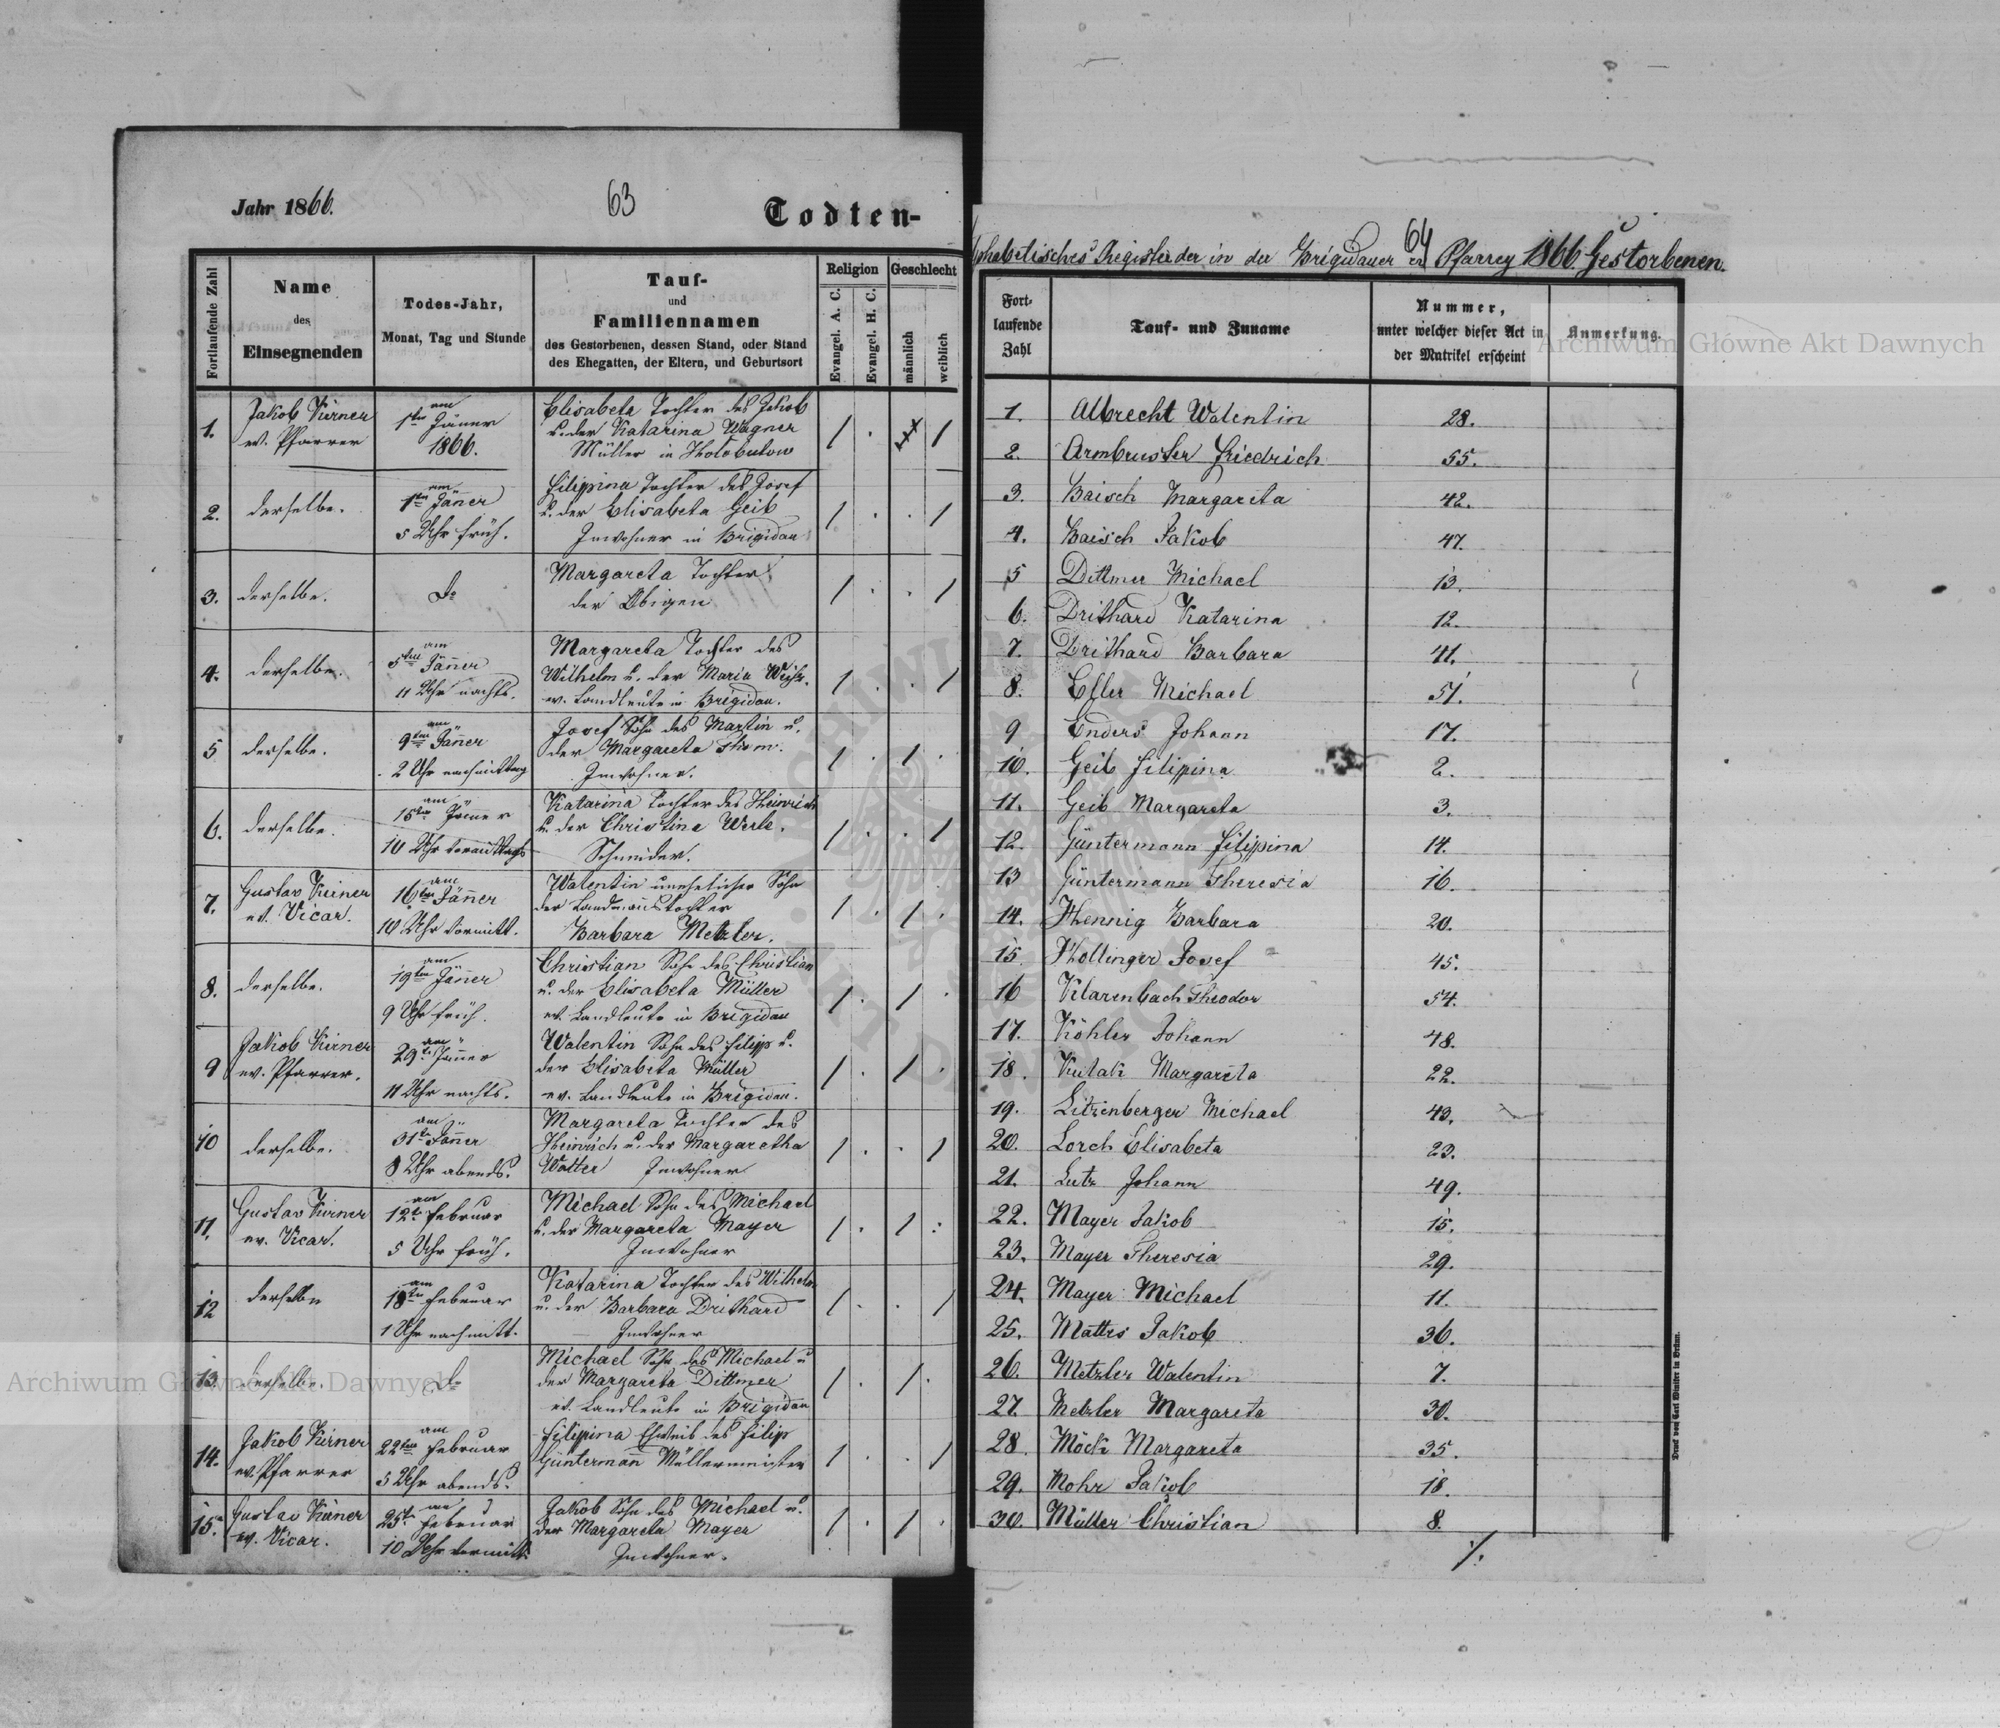 Jahr 1866.
63
Todten-
Fortlaufende Zahl
Name
des
Einsegnenden
Todes-Jahr,
Monat, Tag und Stunde
Tauf-
und
Familiennamen
des Gestorbenen, dessen Stand, oder Stand
des Ehegatten, der Eltern, und Geburtsort
Religion
Evangel. A. C.
Evangel. H. C.
Geschlecht
männlich
weiblich
1.
Jakob Kirner
ev. Pfarrer
am
1ten Jäner
1866.
Elisabeta Tochter des Jakob
u. der Katarina Wagner
Müller in Holobutow
2.
derselbe.
am
1ten Jäner
5 Uhr früh.
Filippina Tochter des Josef
u. der Elisabeta Geib
Inwohner in Brigidau
3.
derselbe.
do
Margareta Tochter
der Obigen
4.
derselbe.
am
5ten Jäner
11 Uhr nachts.
Margareta Tochter des
Wilhelm u. der Maria
ev. Landleute in Brigidau.
5
derselbe.
am
9ten Jäner
2 Uhr nachmittag
Josef Sohn des Martin u.
der Margareta Thom.
Inwohner.
6.
derselbe.
am
15ten Jänner
10 Uhr vormittags
Katarina Tochter des Heinrich
u. der Christine Werle.
Schneider.
7.
Gustav Kirner
ev. Vicar.
am
16ten Jänner
10 Uhr vormitt.
Walentin unehelicher Sohn
der
Barbara Metzler.
8.
derselbe.
am
19ten Jäner
9 Uhr früh.
Christian Sohn des Christian
u. der Elisabeta Müller
ev. Landleute in Brigidau
9
Jakob Kirner
ev. Pfarrer.
am
29t Jänner
11 Uhr nachts.
Walentin Sohn des Filipp u.
der Elisabeta Müller
ev. Landleute in Brigidau.
10
derselbe.
am
31te Jäner
8 Uhr abends.
Margareta Tochter des
Heinrich u. der Margaretha
Walter Inwohner
11.
Gustav Kirner
ev. Vicar.
am
12t Februar
5 Uhr früh.
Michael Sohn des Michael
u. der Margareta Mayer
Inwohner
12
derselbe
am
18ten Februar
1 Uhr nachmitt.
Katarina Tochter des Wilhelm
u. der Barbara Drithard
Inwohner
13.
derselbe.
do
Michael Sohn des Michael u
der Margareta Dittmer
ev. Landleute in Brigidau
14.
Jakob Kirner
ev. Pfarrer
am
22ten Februar
5 Uhr abends.
Filippina Eheweib des Filip
Güntermañ Müllermeister
15.
Gustav Kirner
ev. Vicar.
am
25t Februar
10 Uhr vormitt.
Jakob Sohn des Michael u.
der Margareta Mayer
Inwohner.
64
Alphabetisches Register der in der Brigidauer ev Pfarrey 1866 Gestorbenen.
Fort-
laufende
Zahl
Tauf- und Zuname
Nummer,
unter welcher dieser Act in
der Matrikel erscheint
Anmerkung.
1. Albrecht Walentin 28.
2. Armbruster Friedrich 55.
3. Baisch Margareta 42.
4. Baisch Jakob 47.
5 Dittmer Michael 13.
6. Drithard Katarina 12.
7. Drithard Barbara 41.
8. Efler Michael 51.
9 Enders Johann 17.
10. Geib Filippina 2.
11. Geib Margareta 3.
12. Güntermann Filippina 14.
13 Güntermann Theresia 16.
14. Hennig Barbara 20.
15 Hollinger Josef 45.
16 Klarenbach Theodor 54.
17. Köhler Johann 48.
18. Kutak Margareta 22.
19. Litzenberger Michael 43.
20. Lorch Elisabeta 23.
21. Lutz Johann 49.
22. Mayer Jakob 15.
23. Mayer Theresia 29.
24. Mayer Michael 11.
25. Mattes Jakob 36.
26. Metzler Walentin 7.
27. Metzler Margareta 30.
28. Möck Margareta 35.
29. Mohr Jakob 18.
30. Müller Christian 8.
Druck von Carl Winiker in Brünn.
Archiwum Główne Akt Dawnych
Archiwum Główne Akt Dawnych